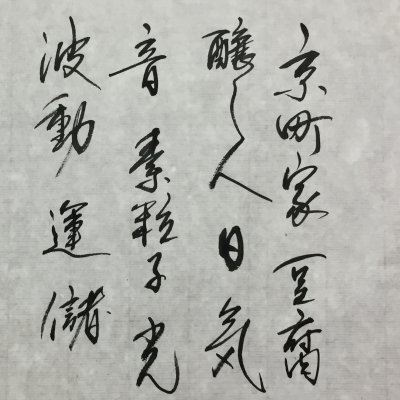 京町家 豆腐
醸し人 日 気
音 素粒子 光
波動 運 儲